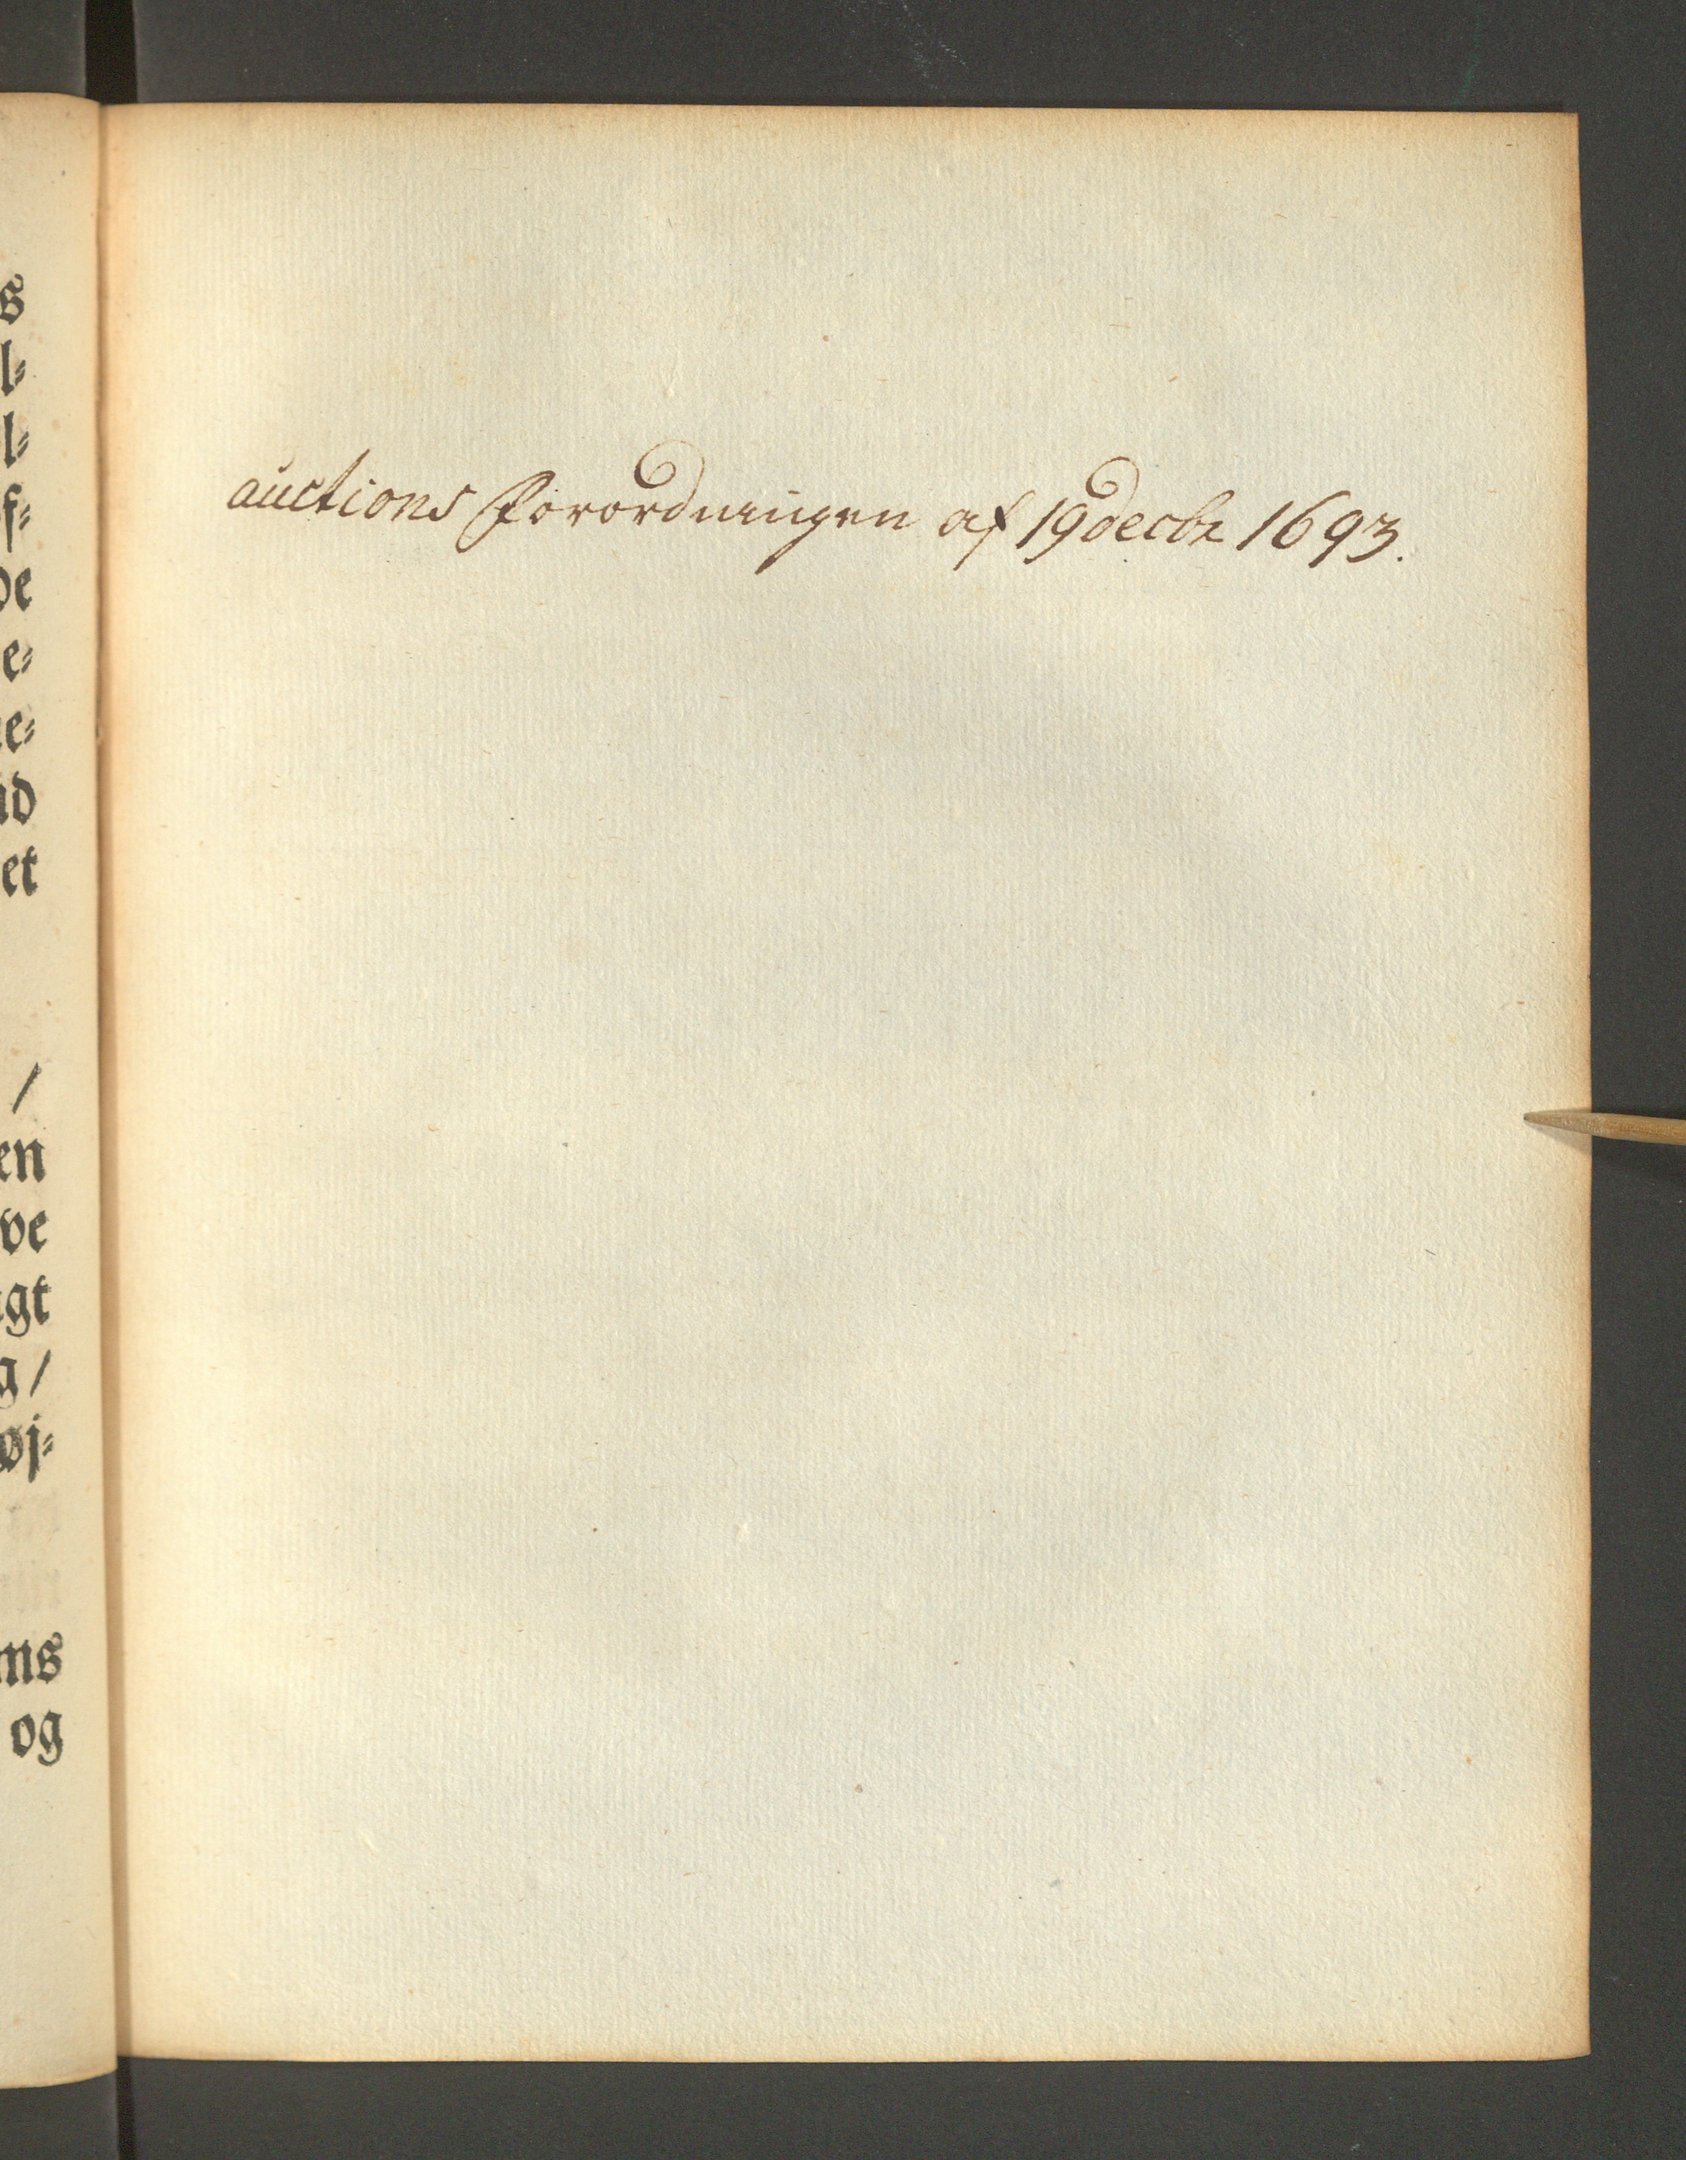 s
l⸗
l⸗
f⸗
de
e⸗
e⸗
ud
et
/
en
ve
gt
g/
øj⸗
ms
og
auctions Forordningen af 19 decbr 1693.